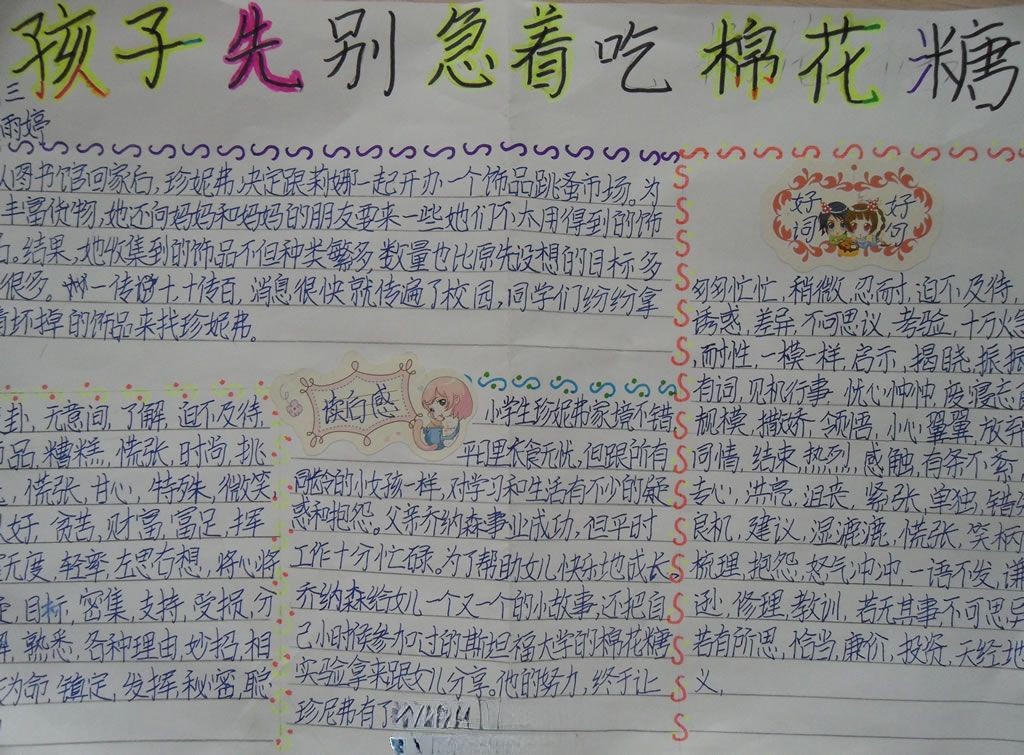 孩子先别急着吃棉花糖
三
雨婷
从图书馆回家后,珍妮弗决定跟莉娜一起开办一个饰品跳蚤市场。为
丰富货物,她还向妈妈和妈妈的朋友要来一些她们不太用得到的饰
品。结果,她收集到的饰品不但种类繁多,数量也比原先设想的目标多
很多。一传十,十传百,消息很快就传遍了校园,同学们纷纷拿
着坏掉的饰品来找珍妮弗。
好词 好句
匆匆忙忙,稍微,忍耐,迫不及待,
诱惑,差异,不可思议,考验,十万火急
,耐性,一模一样,启示,揭晓,振振
有词,见机行事,忧心忡忡,废寝忘食
规模,撒娇,领悟,小心翼翼,放弃
同情,结束,热烈,感触,有条不紊,
专心,洪亮,沮丧,紧张,单独,错
良机,建议,湿漉漉,慌张,笑柄
梳理,抱怨,怒气冲冲,一语不发,谦
逊,修理,教训,若无其事,不可思异
若有所思,恰当,廉价,投资,天经地
义,
卦,无意间,了解,迫不及待,
品,糟糕,慌张,时尚,挑
,慌张,甘心,特殊,微笑
好,贫苦,财富,富足,挥
无度,轻率,左思右想,将心将
,目标,密集,支持,受损,分
解,熟悉,各种理由,妙招,相
为命,镇定,发挥,秘密,聪
读后感
小学生珍妮弗家境不错
平日里衣食无忧,但跟所有
同龄的小女孩一样,对学习和生活有不少的疑
惑和抱怨。父亲乔纳森事业成功,但平时
工作十分忙碌。为了帮助女儿快乐地成长。
乔纳森给女儿一个又一个的小故事;还把自
己小时候参加过的斯坦福大学的棉花糖
实验拿来跟女儿分享。他的努力,终于让
珍尼弗有了